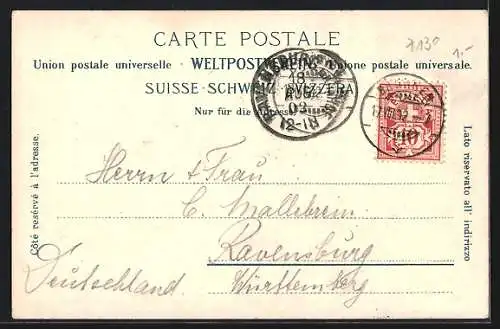 CARTE POSTALE
7130
1.-
Union postale universelle. WELTPOSTVEREIN. Unione postale universale.
SUISSE. SCHWEIZ. SVIZZERA
Nur für die Adresse.
18
AUG
03
12-1N
10
Côté reservé à l'adresse.
Lato riservato all' indirizzo
Herrn & Frau
C. Mallebrein
Ravensburg
Deutschland. Württemberg